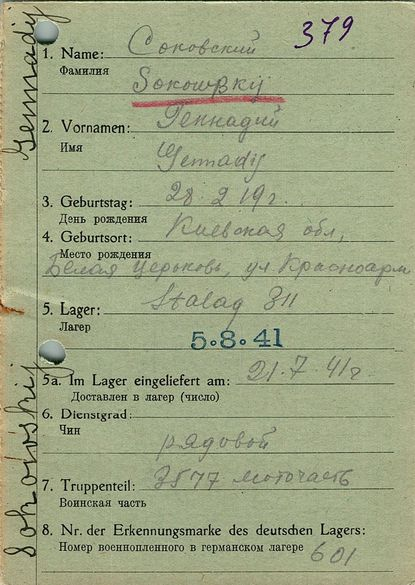 379
1. Name: Соковский
Фамилия
Sokowskij
2. Vornamen: Геннадий
Имя
Gennadij
3. Geburtstag: 28. 2 19 г.
День рождения
4. Geburtsort: Киевская обл,
Место рождения
Белая Церьковь, ул Красноарм
5. Lager: Stalag 311
Лагер
5.8.41
5a. Im Lager eingeliefert am: 21.7.41 г
Доставлен в лагер (число)
6. Dienstgrad:
Чин
рядовой
7. Truppenteil: 3577 моточасть
Воинская часть
8. Nr. der Erkennungsmarke des deutschen Lagers:
Номер военнопленного в германском лагере 601
Gennady